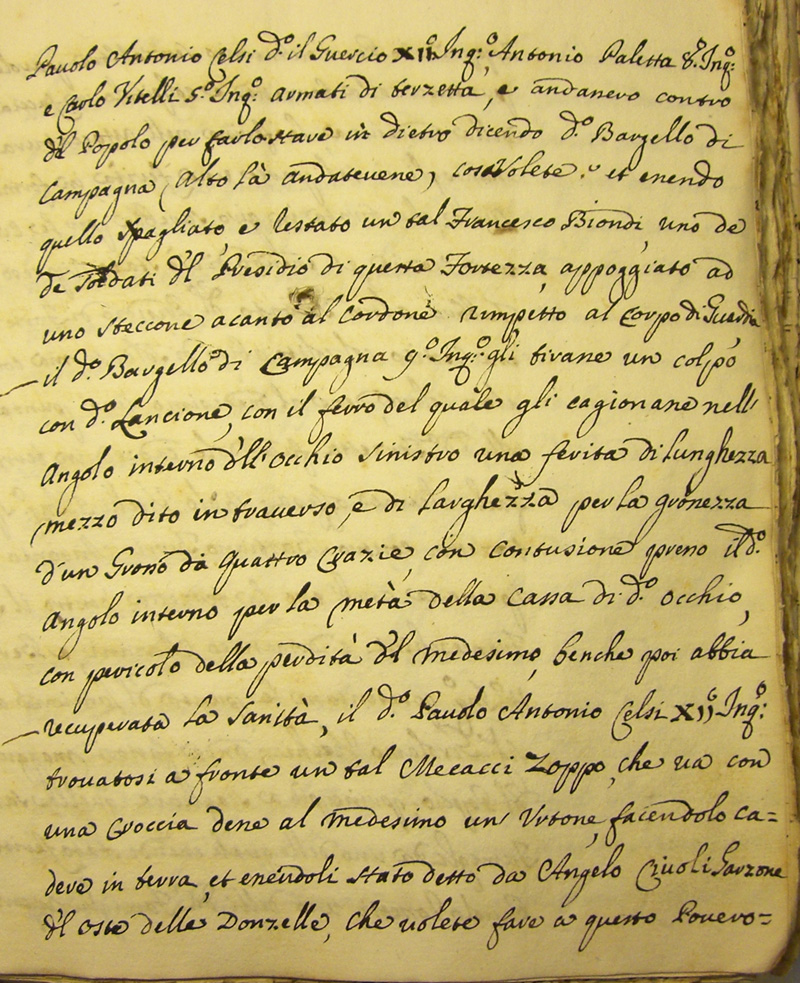 Pavolo Antonio Celsi d.º il Guercio XIIº Inq:º, Antonio Paletta 8.º Inq:º
e Carlo Vitelli 5.º Inq:º armati di terzetta, e andanero contro
d'l Popolo per farlo stare in dietro dicendo d.º Bargello di
Campagna (Alto là andatevene, cosa Volete: et essendo
quello spagliato, e restato un tal Francesco Biondi, uno de
de Soldati d'l Presidio di questa Fortezza appoggiato ad
uno steccone acanto al Cordone rimpetto al Corpo di Guardia
il d.º Bargello di Campagna 9.º Inq:º gli tirasse un colpo
con d.º Lancione, con il ferro del quale gli cagionasse nell'
Angolo interno d'll'occhio sinistro una ferita di lunghezza
mezzo dito in traverso, e di larghezza per la grossezza
d'un Grosso da quattro Crazie, con contusione presso il d.º
Angolo interno per la metà della Cassa di d.º occhio,
con pericolo della perdita d'l medesimo, benche poi abbia
recuperata la Sanità, il d.º Pavolo Antonio Celsi XIIº Inq:º
trovatosi a fronte un tal Mecacci Zoppo, che va con
una Croccia desse al medesimo un Urtone, facendolo ca=
dere in terra, et essendoli stato detto da Angelo Civoli Garzone
d'l oste delle Donzelle, che volete fare a questo Povero=